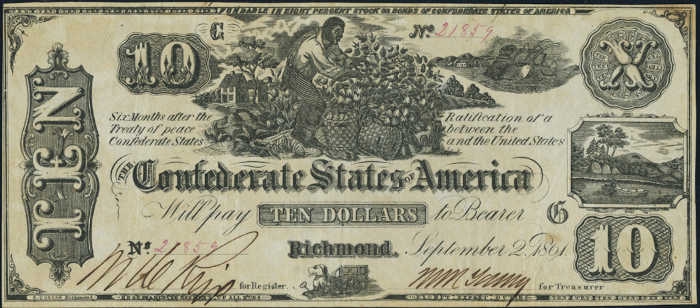 FUNDABLE IN EIGHT PERCENT STOCK OR BONDS OF CONFEDERATE STATES OF AMERICA
10
C
No. 21859
X
TEN
Six Months after the
Treaty of peace
Confederate States
Ratification of a
between the
and the United States
THE Confederate States OF America
Will pay TEN DOLLARS to Bearer
G
No. 21859
Richmond, September 2, 1861
10
for Register
for Treasurer